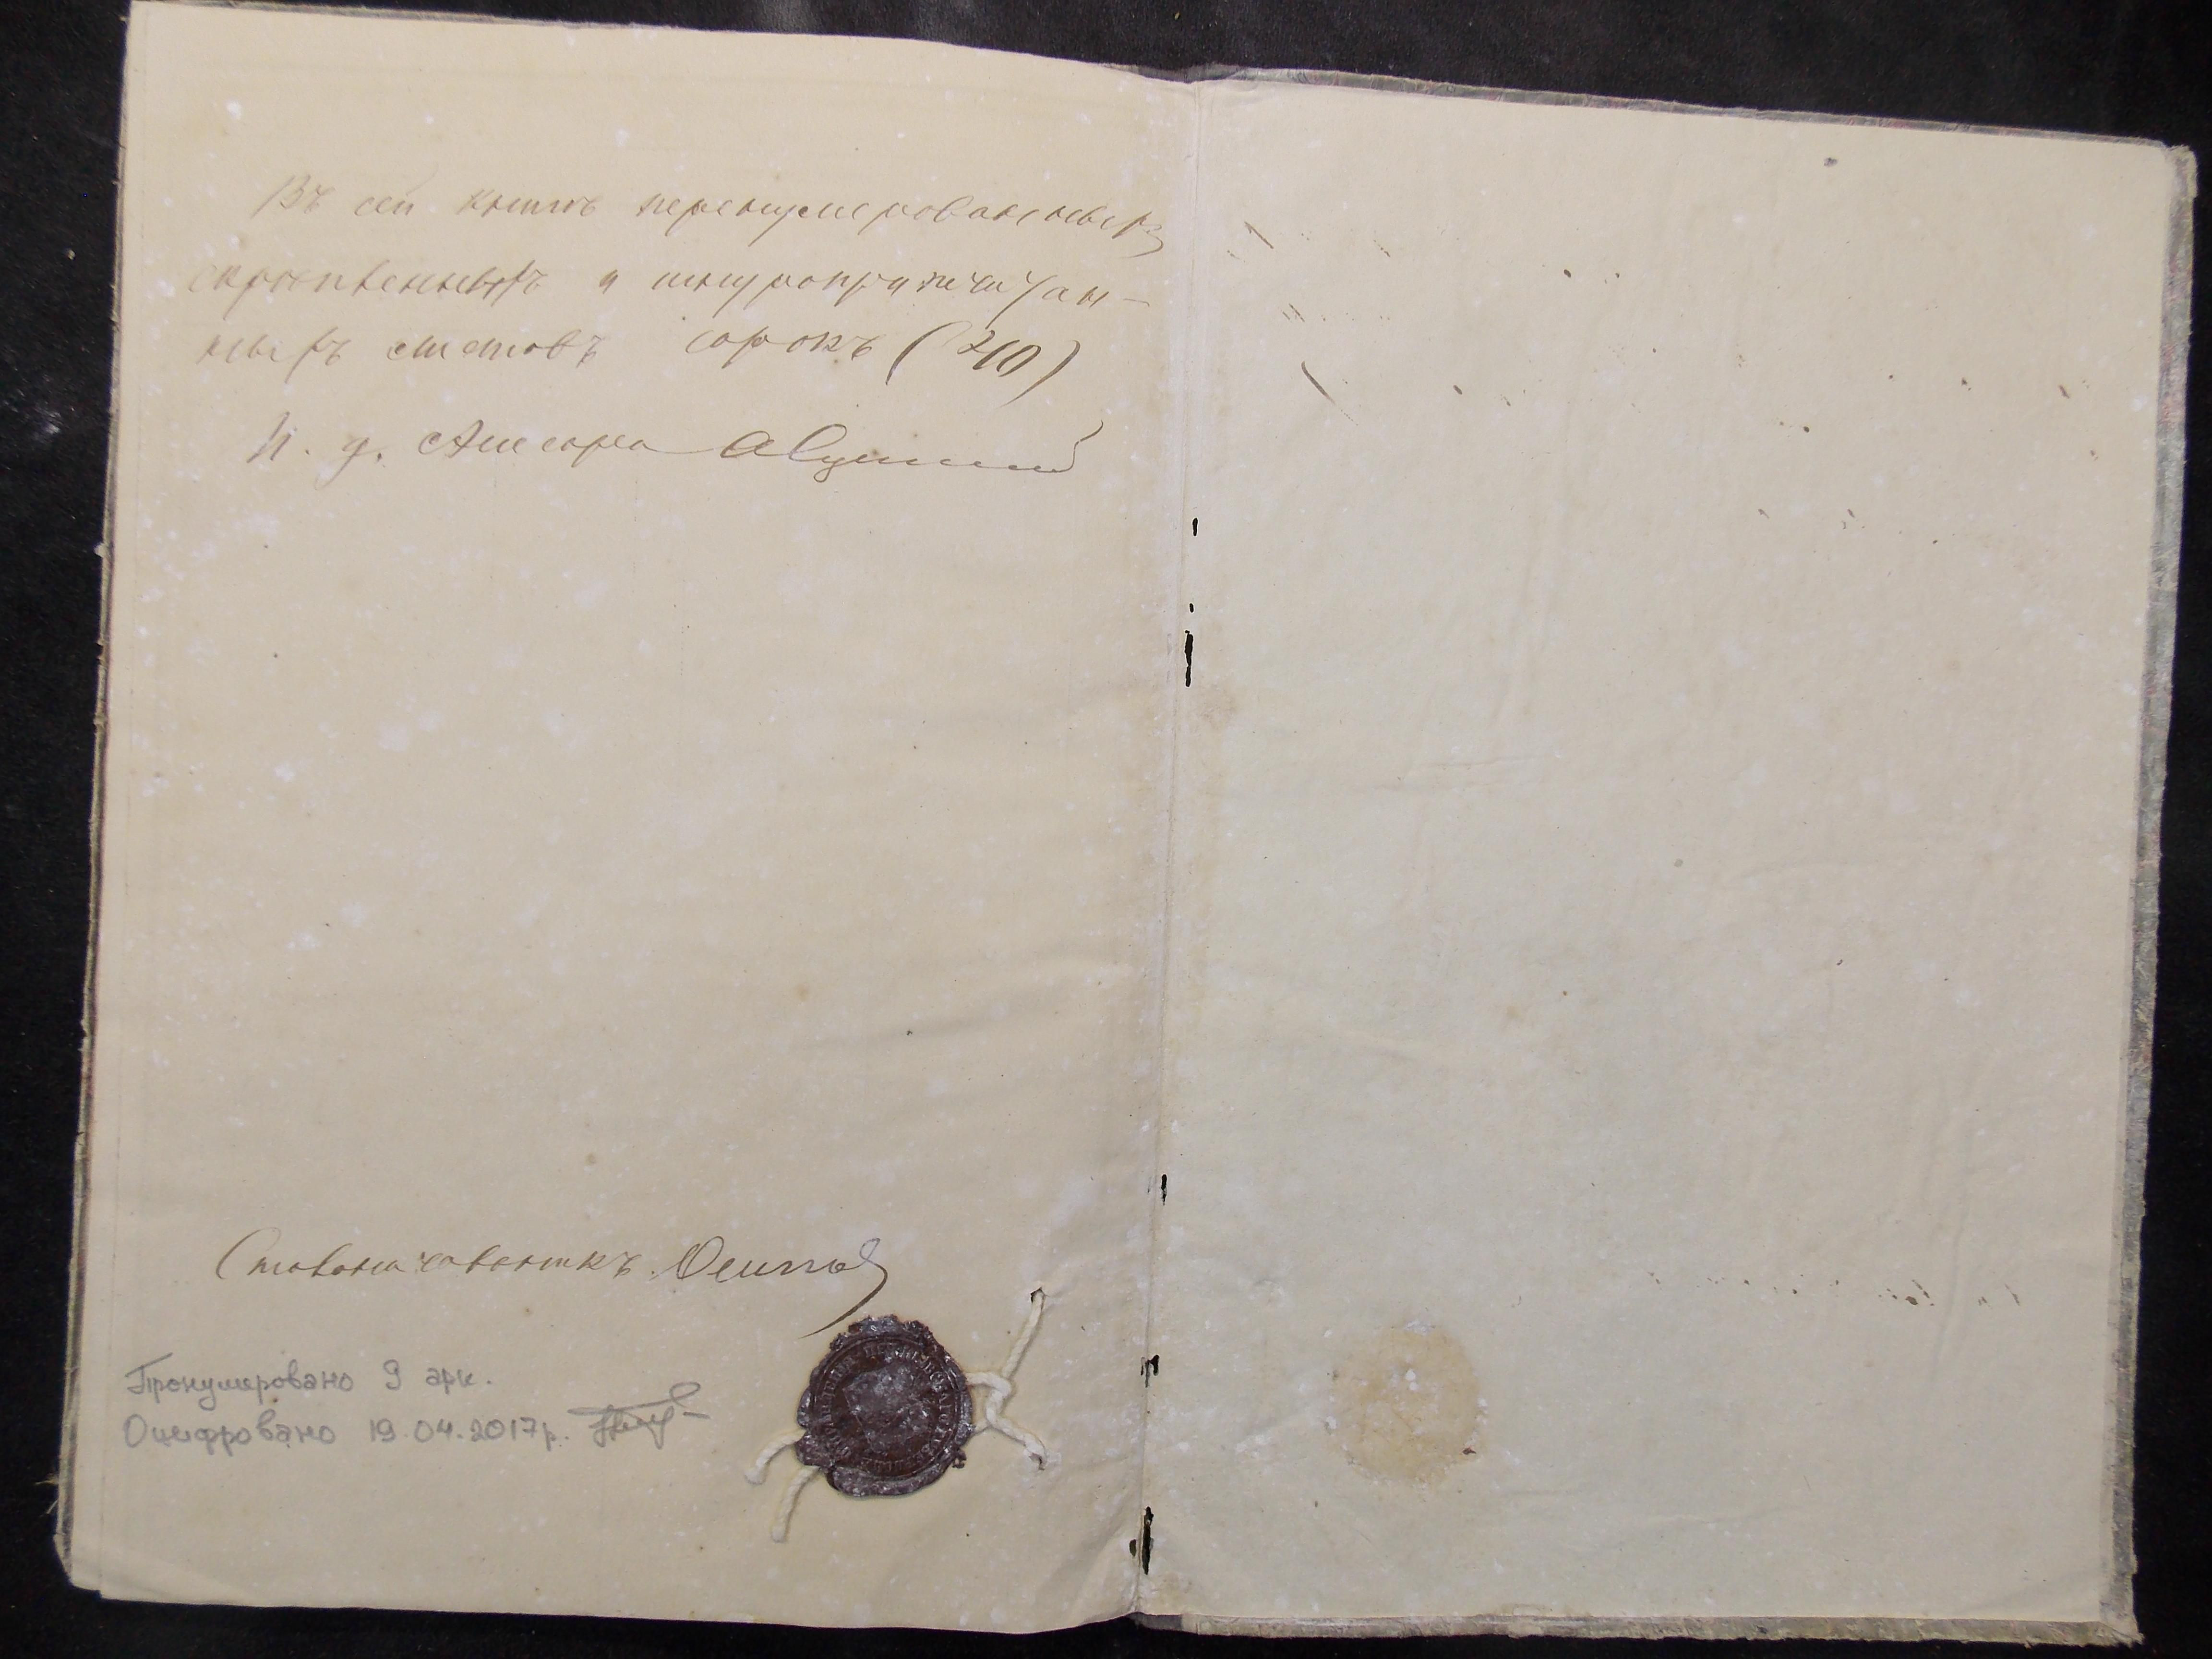 Въ сей книгѣ перенумерованныхъ
скрѣпленныхъ и шнуропропечатан-
ныхъ листовъ сорокъ (40)
И. д.
Столоначальникъ Осиповъ
Пронумеровано 9 арк.
Оцифровано 19.04.2017р.